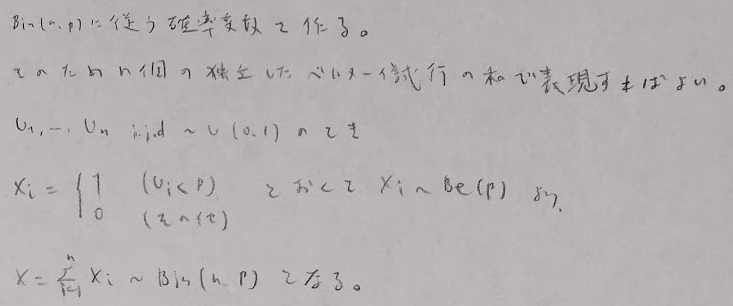 Bin(n,p)に従う確率変数を作る。
そのためn個の独立したベルヌーイ試行の和で表現すればよい。
U₁, …, Uₙ i.i.d ~ U(0,1) のとき
Xᵢ = { 1 (Uᵢ < p) 0 (その他) とおくと Xᵢ ~ Be(p) より、
X = Σᵢ₌₁ⁿ Xᵢ ~ Bin(n,p) となる。